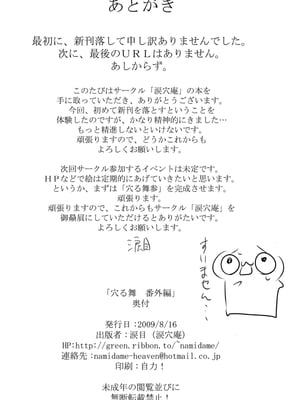 あとがき
最初に、新刊落して申し訳ありませんでした。
次に、最後のＵＲＬはありません。
あしからず。
このたびはサークル「涙穴庵」の本を
手に取っていただき、ありがとうございます。
今回、初めて新刊を落とすということを
体験したのですが、かなり精神的にきました…
もっと精進しないといけないです。
頑張りますので、どうかこれからも
よろしくお願いします。
次回サークル参加するイベントは未定です。
ＨＰなどで絵は定期的にあげていきたいと思います。
というか、まずは「穴る舞参」を完成させます。
頑張りますので、これからもサークル「涙穴庵」を
御贔屓にしていただけるとありがたいです。
涙目
すいません…
「穴る舞　番外編」
奥付
発行日：2009/8/16
出版者：涙目（涙穴庵）
HP:http://green.ribbon.to/~namidame/
連絡先：namidame-heaven@hotmail.co.jp
印刷：自力！
未成年の閲覧並びに
無断転載禁止！